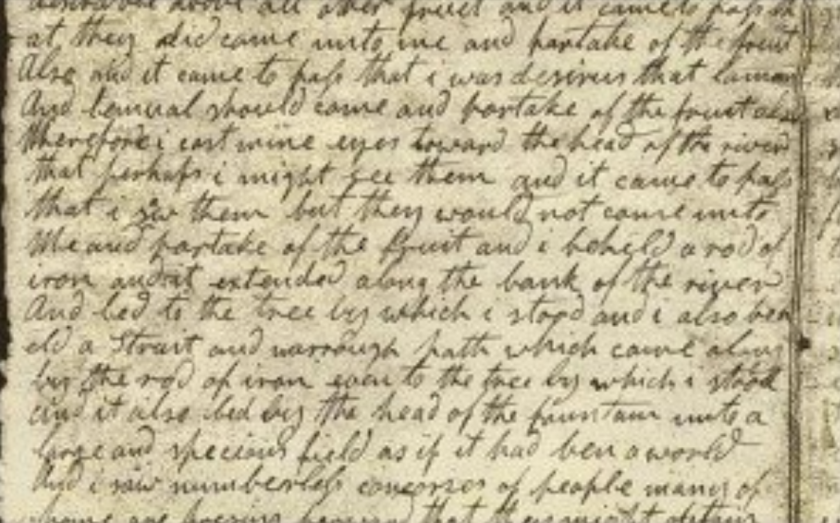 desirable above all other fruit and it came to pass th
at they did come unto me and partake of the fruit
Also and it came to pass that i was desirus that laman
And lemual should come and partake of the fruit also
therefore i cast mine eyes toward the head of the river
that perhaps i might see them and it came to pass
that i saw them but they would not come unto
Me and partake of the fruit and i beheld a rod of
iron and it extended along the bank of the river
And led to the tree by which i stood and i also beh
eld a strait and narrough path which came along
by the rod of iron even to the tree by which i stood
and it also led by the head of the fountain unto a
large and specious field as if it had ben a world
And i saw numberless concorses of people many of
whome are pressing forward that they might obtain